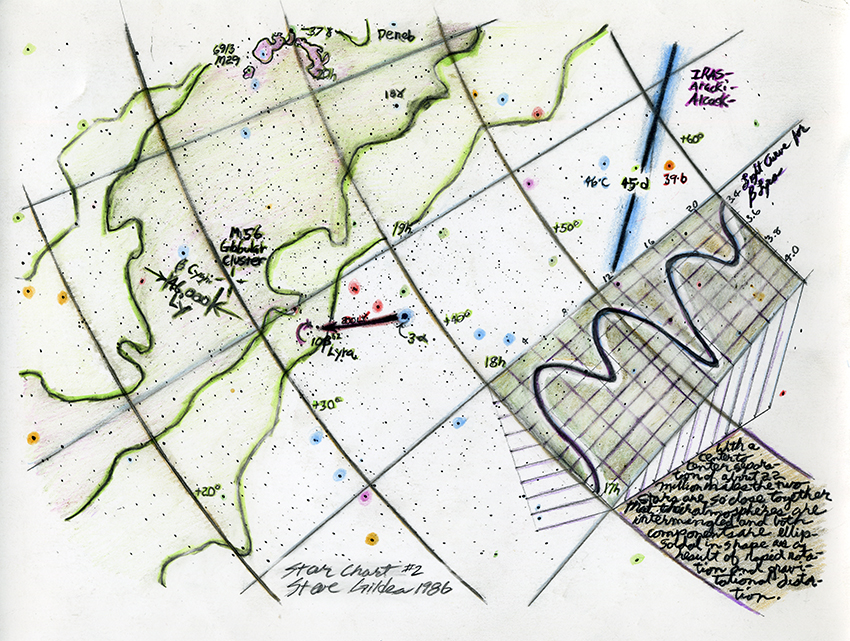 6913
M29
37 γ
20h
Deneb
18 γ
IRAS-
Araki-
Alcock-
+60°
46·C
45·d
39·b
Light Curve for
β Lyrae
19h
M56
Globular
Cluster
β Cygni
46,000
Ly
+50°
+40°
20
16
12
8
3.4
3.6
3.8
4.0
3α
10β
Lyra
18h
+30°
+20°
17h
With a
center to
center separa-
tion of about 22
million miles the two
stars are so close together
that their atmospheres are
intermingled and both
components are ellip-
soidal in shape as a
result of rapid rota-
tion and gravi-
tational distor-
tion.
Star Chart #2
Steve Gildea 1986